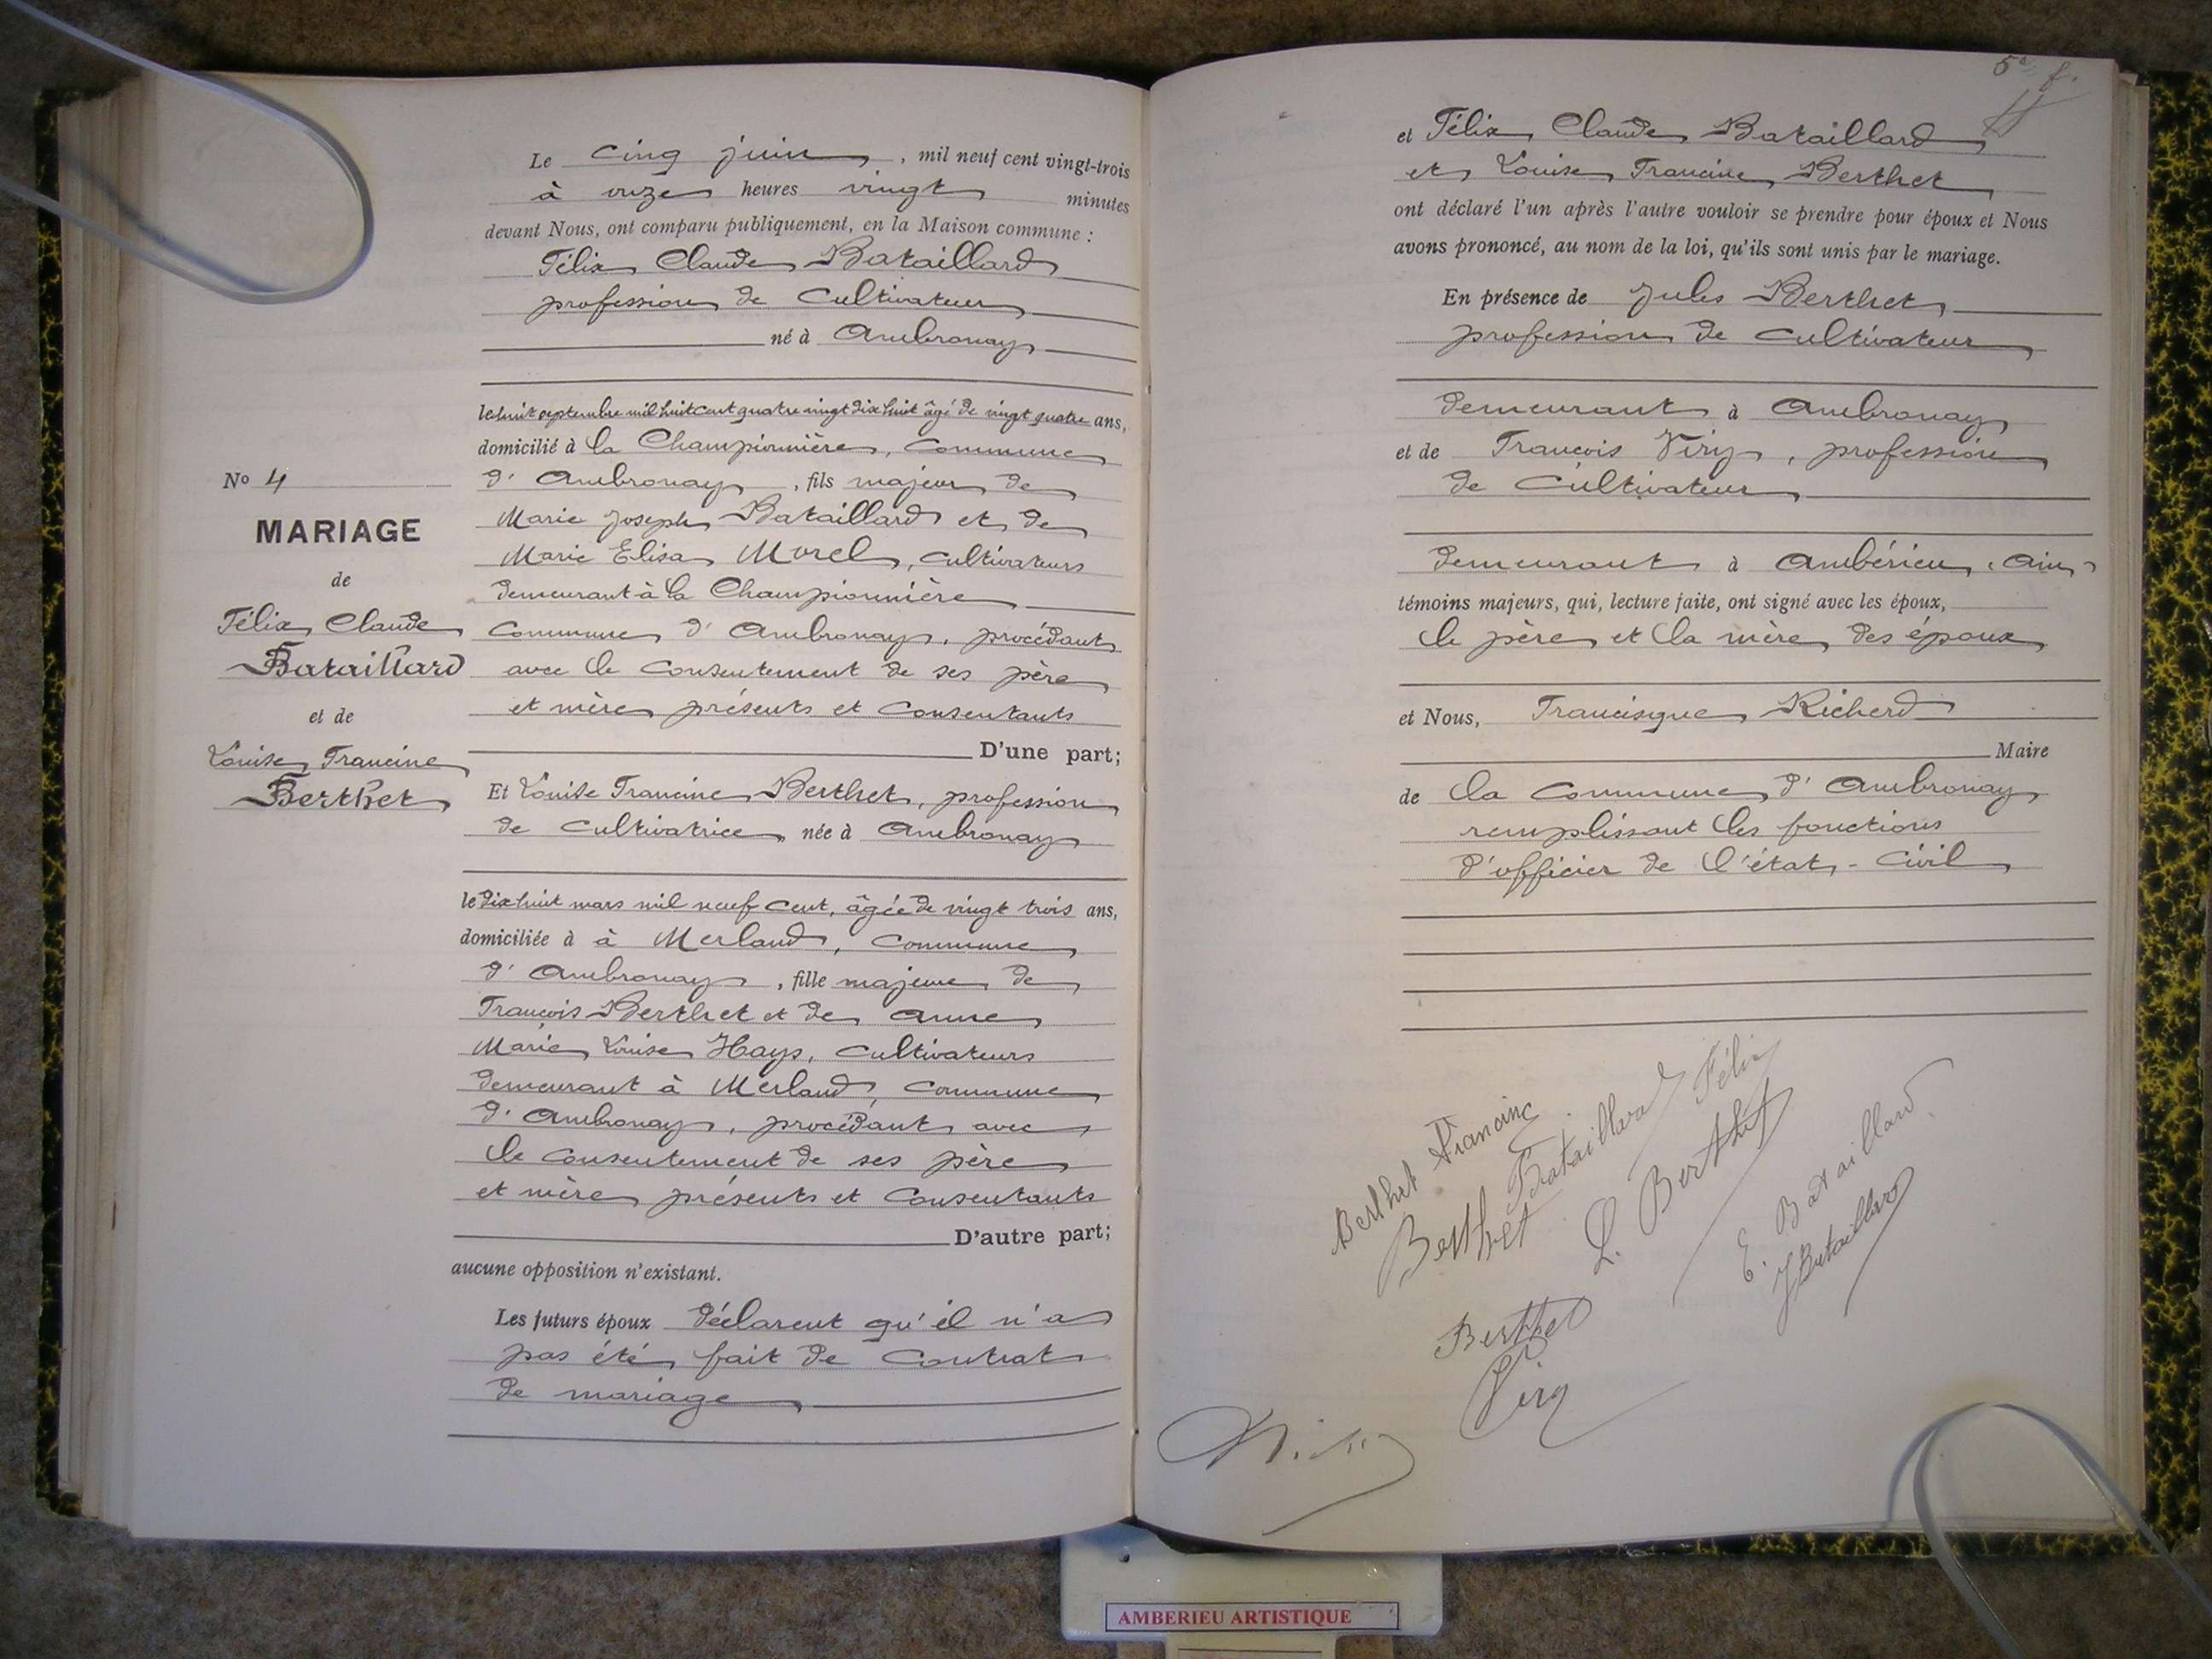 Le cinq juin, mil neuf cent vingt-trois
à onze heures vingt minutes
devant Nous, ont comparu publiquement, en la Maison commune :
Félix Claude Bataillard
profession de Cultivateur
né à Ambronay
le huit septembre mil huit cent quatre vingt dix huit âgé de vingt quatre ans,
domicilié à la Championnière, Commune
d'Ambronay, fils majeur de
Marie Joseph Bataillard et de
Marie Elisa Morel, Cultivateurs
demeurant à la Championnière
Commune d'Ambronay, procédant
avec le consentement de ses père
et mère présents et consentants
D'une part;
No 4
MARIAGE
de
Félix Claude
Bataillard
et de
Louise Francine
Berthet
Et Louise Francine Berthet, profession
de Cultivatrice née à Ambronay
le dix huit mars mil neuf cent, âgée de vingt trois ans,
domiciliée à à Merland, Commune
d'Ambronay, fille majeure de
François Berthet et de Anne
Marie Louise Hays, Cultivateurs
demeurant à Merland, Commune
d'Ambonay, procédant avec
le consentement de ses père
et mère présents et Consentants
D'autre part;
aucune opposition n'existant.
Les futurs époux déclarent qu'il n'a
pas été fait de Contrat
de mariage
5e f.
et Félix Claude Bataillard
et Louise Francine Berthet
ont déclaré l'un après l'autre vouloir se prendre pour époux et Nous
avons prononcé, au nom de la loi, qu'ils sont unis par le mariage.
En présence de Jules Berthet
profession de Cultivateur
demeurant à Ambronay
et de François Viry, profession
de Cultivateur
demeurant à Ambérieu (Ain)
témoins majeurs, qui, lecture faite, ont signé avec les époux,
le père et la mère des époux
et Nous, Francisque Richerd
Maire
de la Commune d'Ambronay
remplissant les fonctions
d'officier de l'état-Civil
Berthet Francine
Bataillard Félix
Berthet
L. Berthet
E. Bataillard
J Bataillard
Berthet
Viry
AMBERIEU ARTISTIQUE